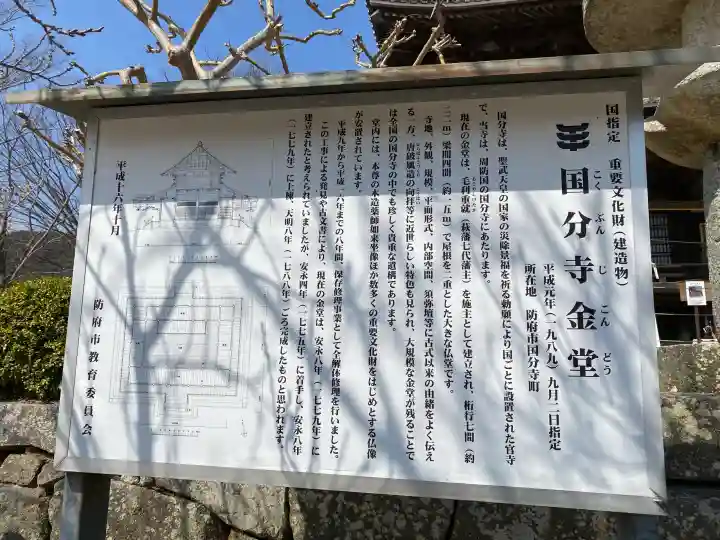 国指定　重要文化財（建造物）
国分寺金堂
こくぶんじこんどう
平成元年（一九八九）九月二日指定
所在地　防府市国分寺町
国分寺は、聖武天皇の国家の災除景福を祈る勅願により国ごとに設置された官寺
で、当寺は、周防国の国分寺にあたります。
現在の金堂は、毛利重就（萩藩七代藩主）を施主として建立され、桁行七間（約
二二ｍ）梁間四間（約一五ｍ）で屋根を二重とした大きな仏堂です。
寺地、外観、規模、平面形式、内部空間、須弥壇等に古式以来の由緒をよく伝え
る一方、唐破風造の向拝等に近世らしい特色も見られ、大規模な金堂が残ることで
は全国の国分寺の中でも珍しく貴重な遺構であります。
堂内には、本尊の木造薬師如来坐像ほか数多くの重要文化財をはじめとする仏像
が安置されています。
平成九年から平成一六年までの八年間、保存修理事業として全解体修理を行いました。
この工事による発見や古文書により、現在の金堂は、安永八年（一七七九年）に
建立されたと考えられていましたが、安永四年（一七七五年）に着手し、安永八年
（一七七九年）に上棟、天明八年（一七八八年）ごろ完成したものと思われます。
平成十六年十月
防府市教育委員会